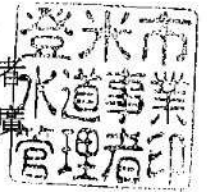 登米市
水道事業
管理者印
者